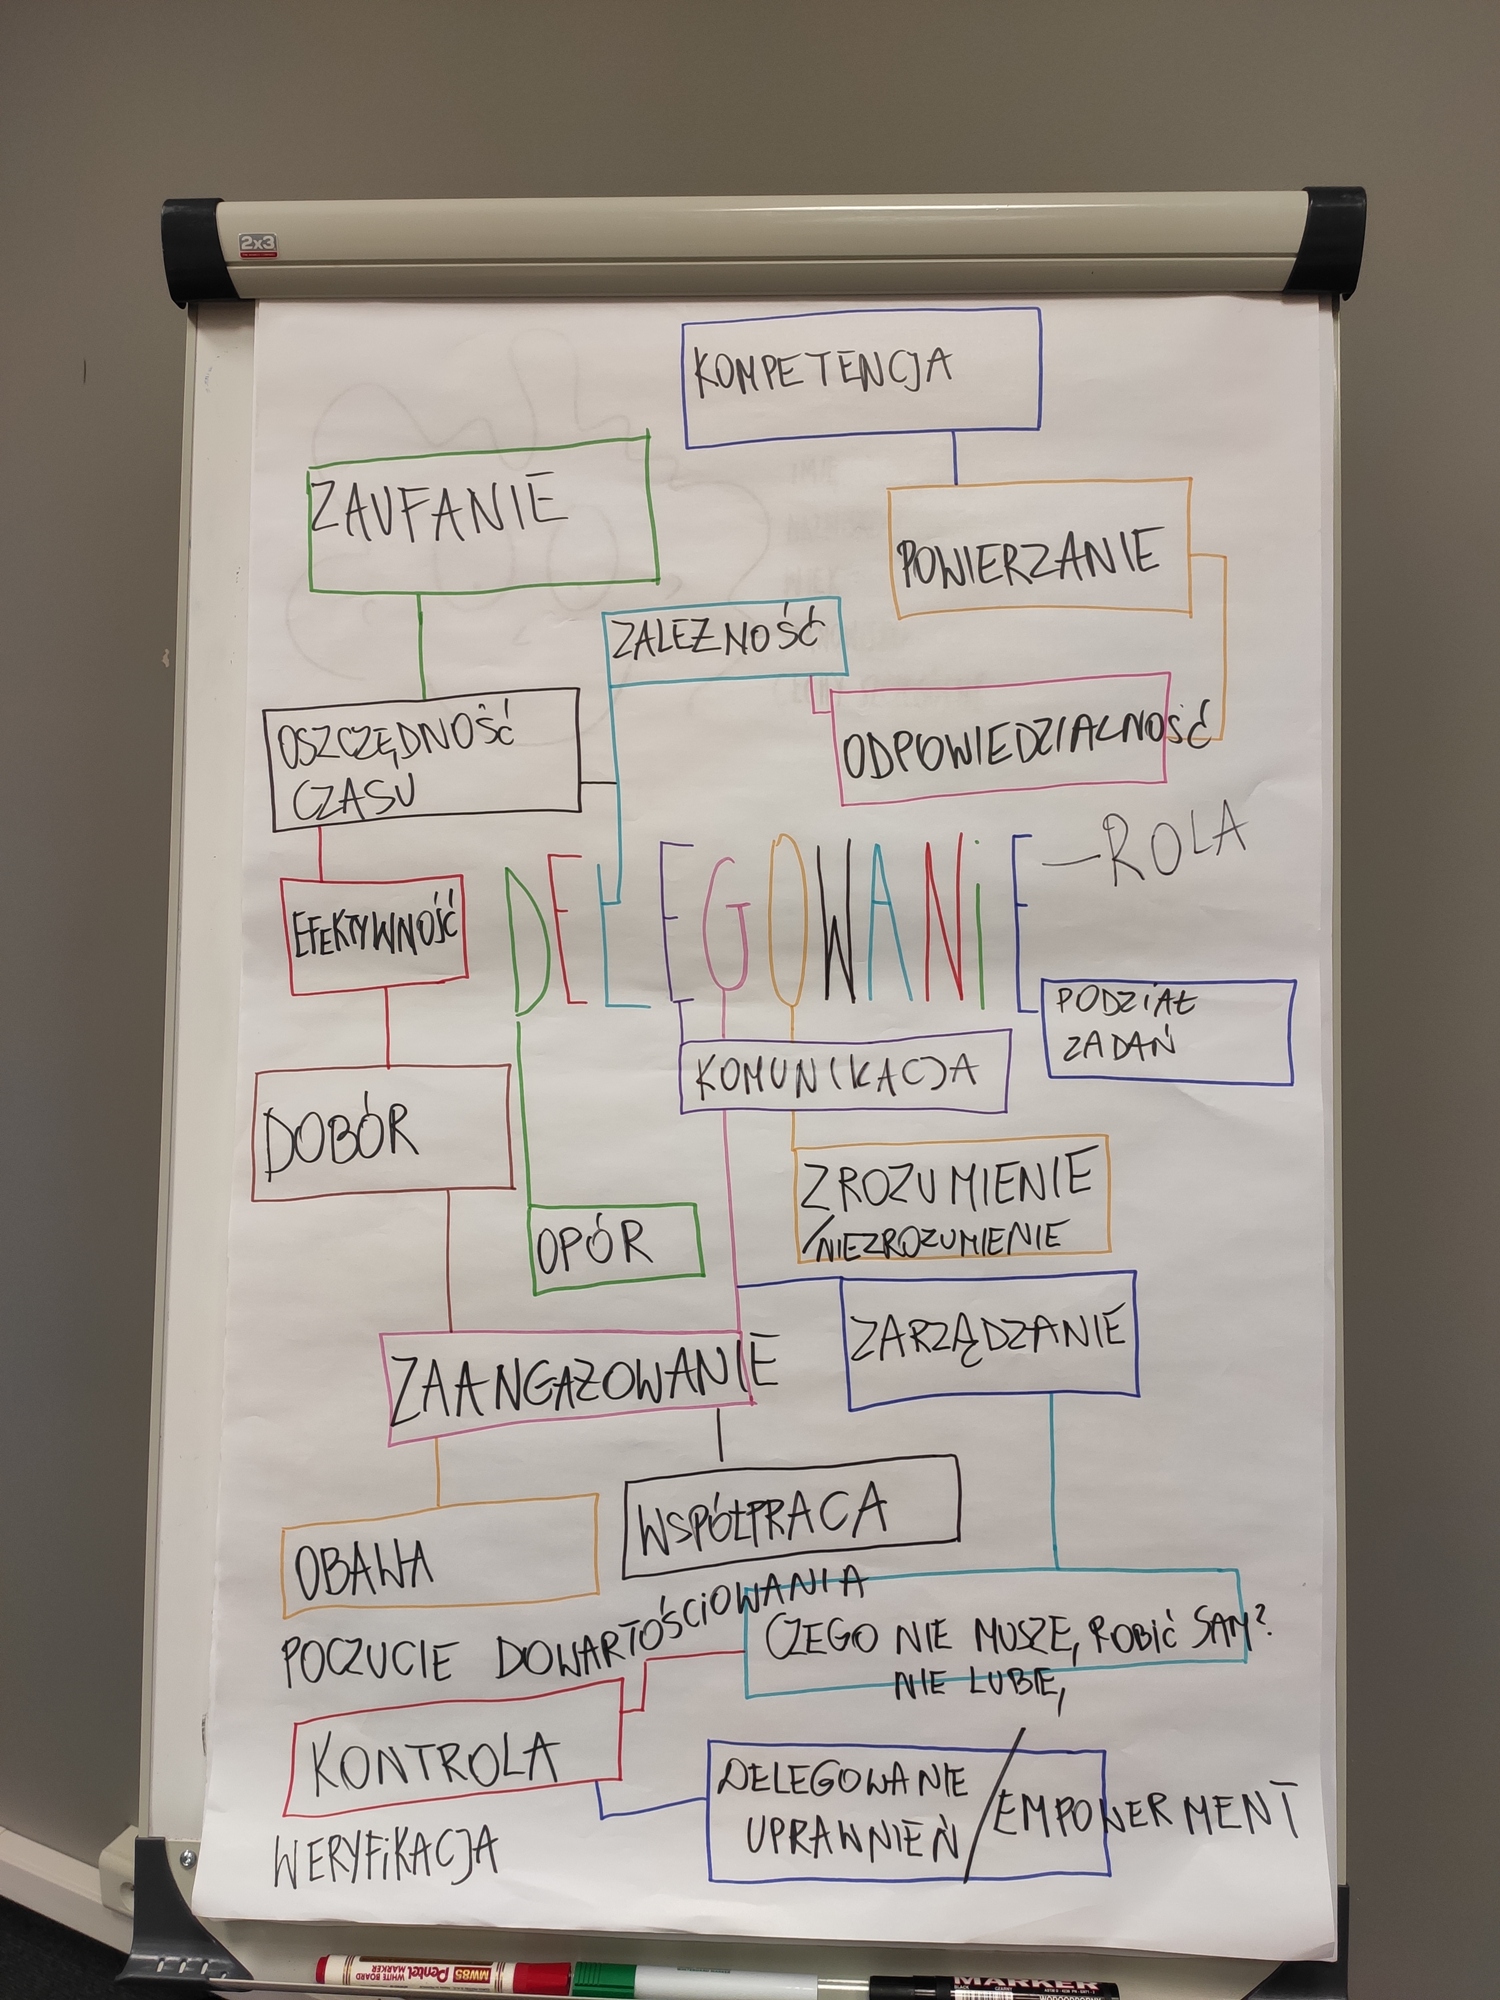 2x3
KOMPETENCJA
ZAUFANIE
POWIERZANIE
ZALEŻNOŚĆ
OSZCZĘDNOŚĆ
CZASU
ODPOWIEDZIALNOŚĆ
DELEGOWANiE
—ROLA
EFEKTYWNOŚĆ
PODZiAŁ
ZADAŃ
KOMUNIKACJA
DOBÓR
ZROZUMIENIE
/NIEZROZUMIENIE
OPÓR
ZARZĄDZANIE
ZAANGAŻOWANIE
WSPÓŁPRACA
OBAWA
POCZUCIE DOWARTOŚCiOWANIA
CZEGO NIE MUSZĘ ROBIĆ SAM?
NIE LUBIĘ
KONTROLA
DELEGOWANIE
UPRAWNIEŃ / EMPOWERMENT
WERYFiKACJA
Pentel
WHITE BOARD
MARKER
MW85
MARKER